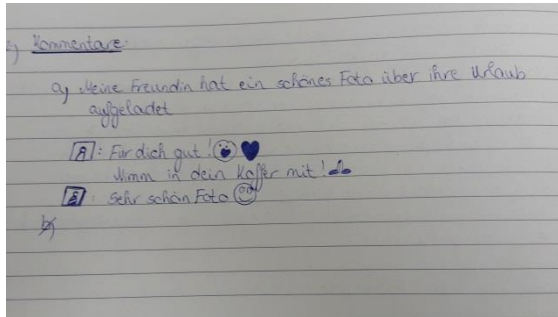 Kommentare:
a) Meine Freundin hat ein schönes Foto über ihre Urlaub
aufgeladet
A: Für dich gut! 😮 ♥
Nimm in dein Koffer mit!
B: Sehr schön Foto 🙂
b)